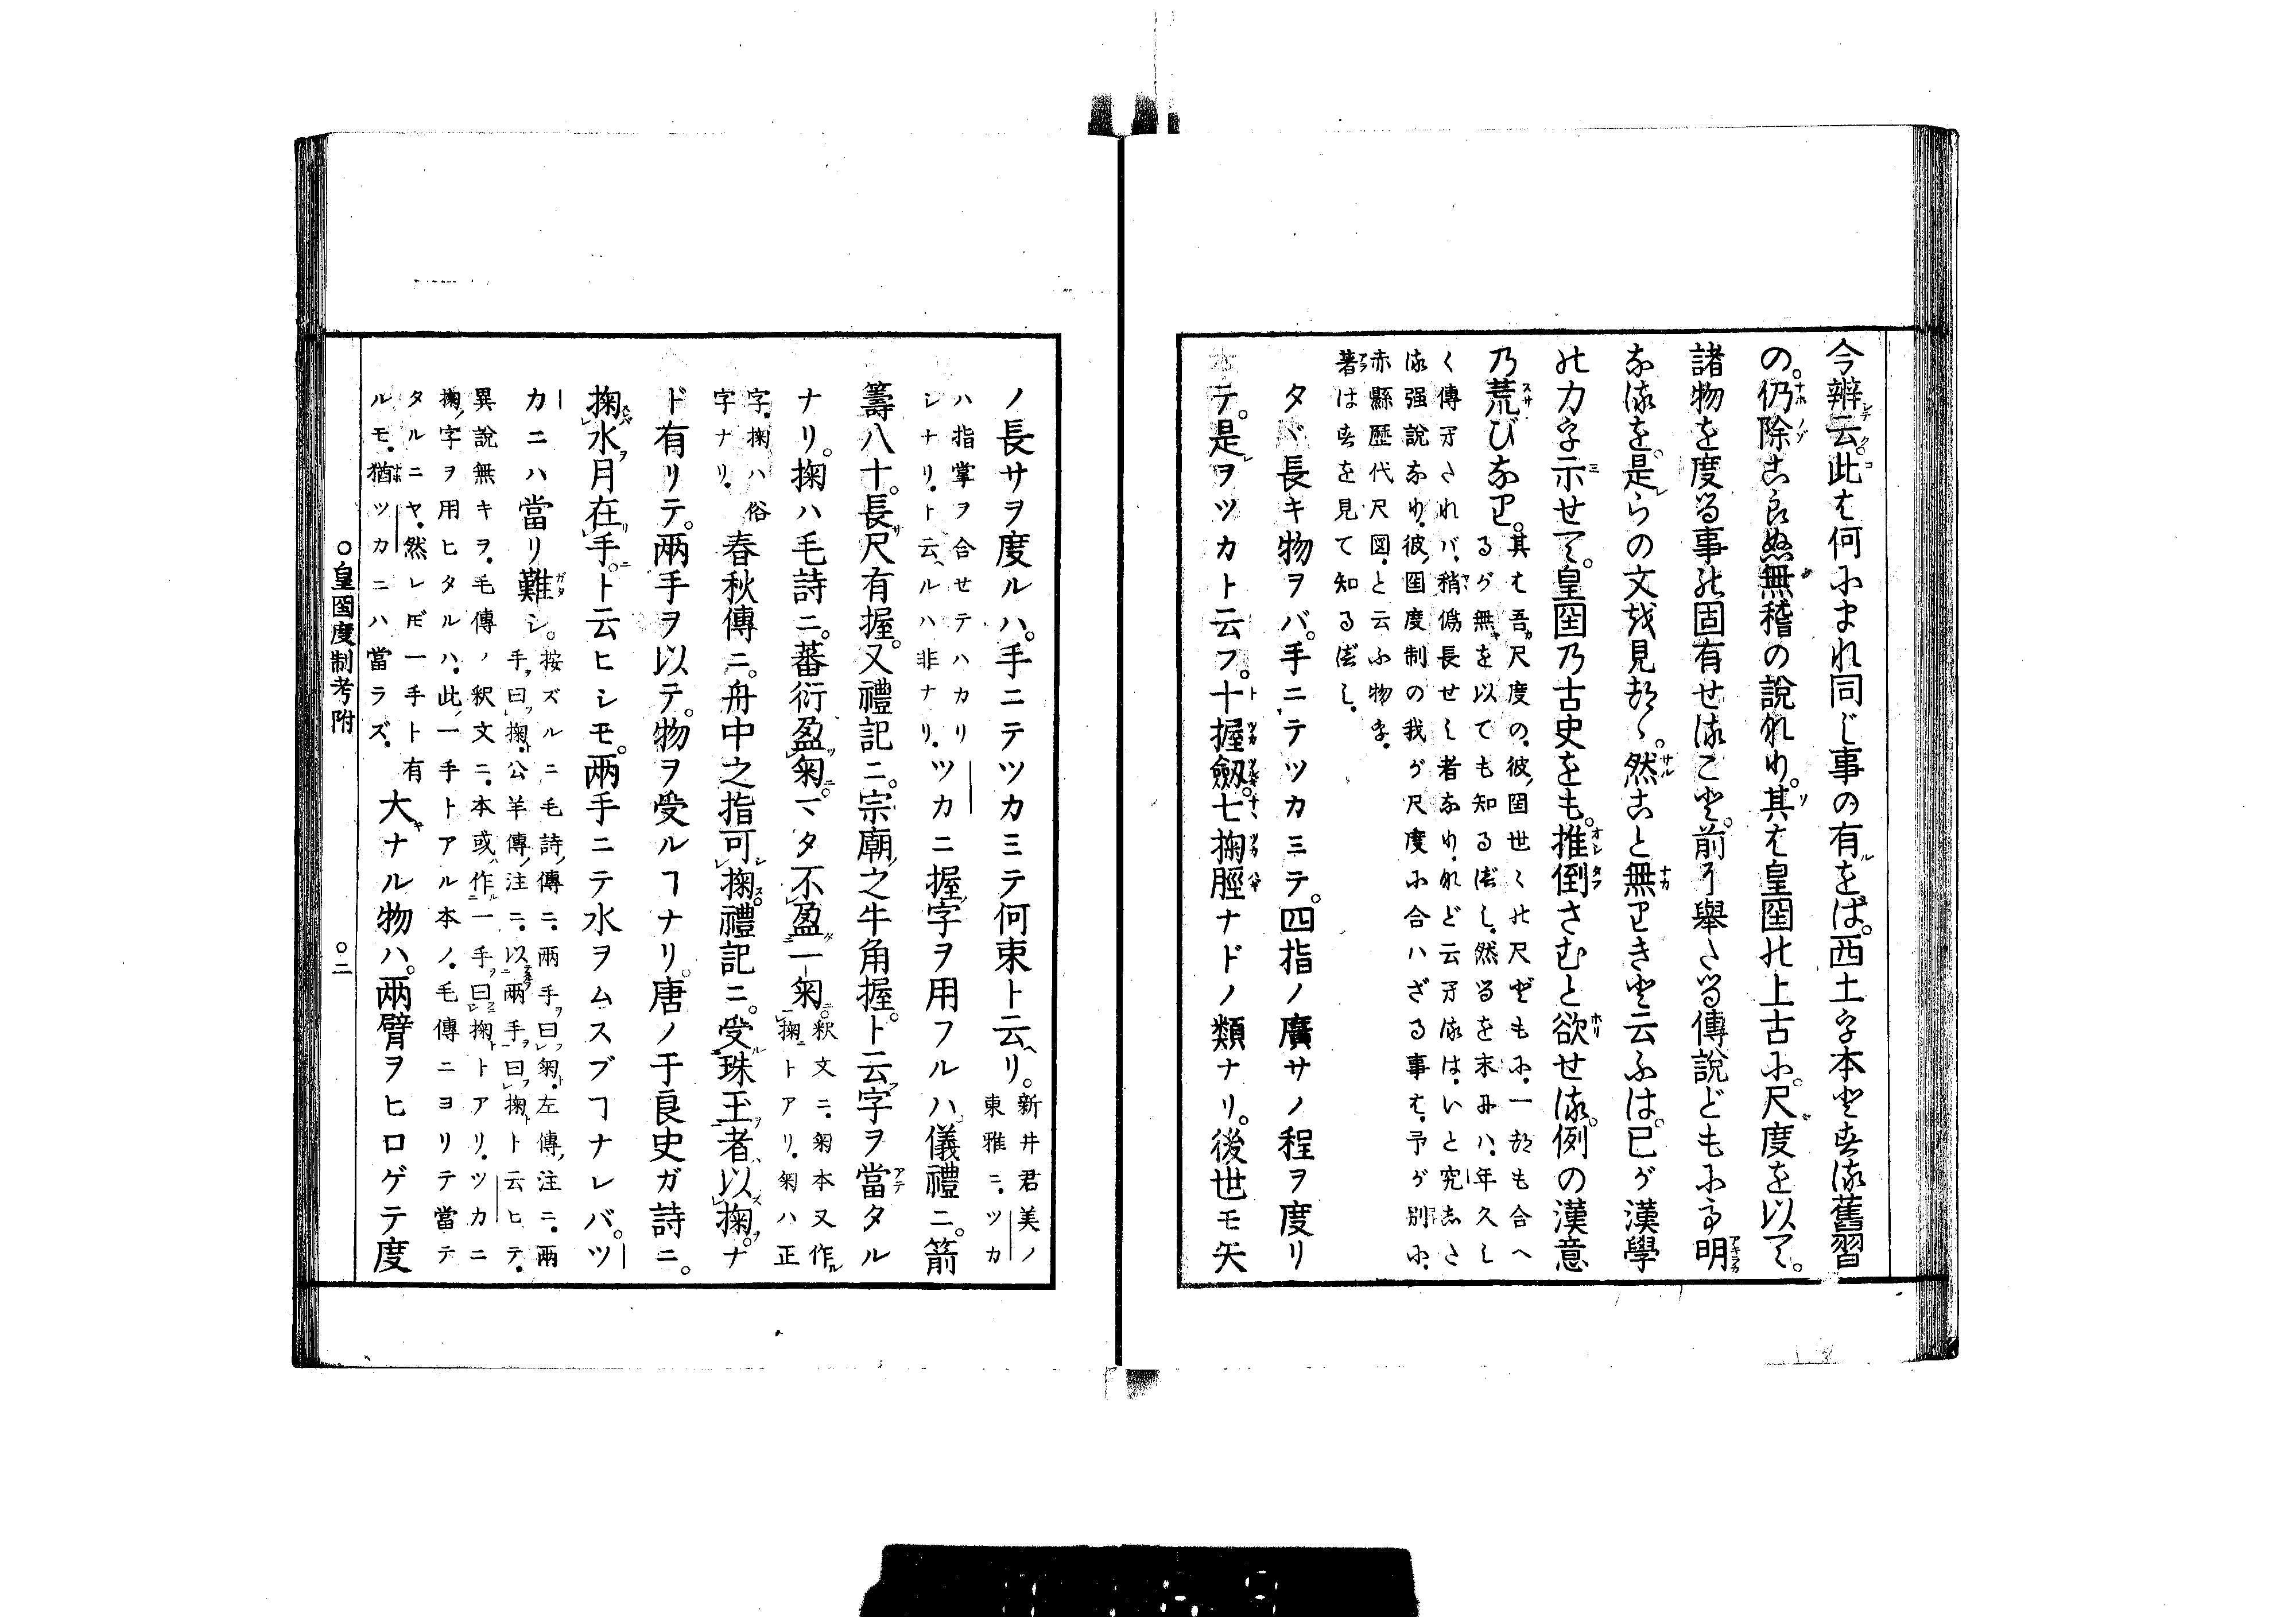 今辨云。此は何にまれ同じ事の有をば。西土字本とする舊習
の。仍除こらぬ無稽の說なり。其は皇国の上古に。尺度を以て。
諸物を度る事の固有せることを。前に舉たる傳說どもにて明
なるを。是らの文は見ながら。然こと無りきと云ふは。己が漢學
の力を示せて。皇国乃古史をも。推倒さむと欲せる。例の漢意
乃荒びなり。
其は吾尺度の。彼国世々の尺どもに。一つも合へ
るが無を以ても知るべし。然るを末には。年久し
く傳にされば。稍偽長せし者なり。など云にるは。いと究ごさ
る强說なり。彼国度制の我が尺度に合ハざる事は。予が別に。
赤縣歷代尺図。と云ふ物を。
著はせるを見て知るべし。
タヾ長キ物ヲバ。手ニテツカミテ。四指ノ廣サノ程ヲ度リ
テ。是ヲツカト云フ。十握劔。七掬脛ナドノ類ナリ。後世モ矢
ノ長サヲ度ルハ。手ニテツカミテ何束ト云ヘリ。
新井君美ノ
東雅ニ。ツカ
ハ指掌ヲ合セテハカリ
シナリ。ト云ヘルハ非ナリ。
ツカニ握字ヲ用フルハ。儀禮ニ。箭
籌八十。長尺有握。又禮記ニ。宗廟之牛角握。ト云字ヲ當タル
ナリ。掬ハ毛詩ニ。蕃衍盈匊。マタ不盈一匊。
釈文ニ。匊本又作
掬トアリ。匊ハ正
字。掬ハ俗
字ナリ。
春秋傳ニ。舟中之指可掬。禮記ニ。受珠玉者以掬。ナ
ド有リテ。兩手ヲ以テ。物ヲ受ルヿナリ。唐ノ于良史ガ詩ニ。
掬水月在手。ト云ヒシモ。兩手ニテ水ヲムスブヿナレバ。ツ
カニハ當リ難シ。
按ズルニ毛詩傳ニ。兩手曰匊。左傳注ニ。兩
手曰掬。公羊傳注ニ。以兩手曰掬ト云ヒテ。
異說無キヲ。毛傳ノ釈文ニ。本或作一手曰掬トアリ。ツカニ
掬字ヲ用ヒタルハ。此一手トアル本ノ。毛傳ニヨリテ當テ
タルニヤ。然レ𪜈一手ト有
ルモ。猶ツカニハ當ラズ。
大ナル物ハ。兩臂ヲヒロゲテ度
○皇国度制考附
○二